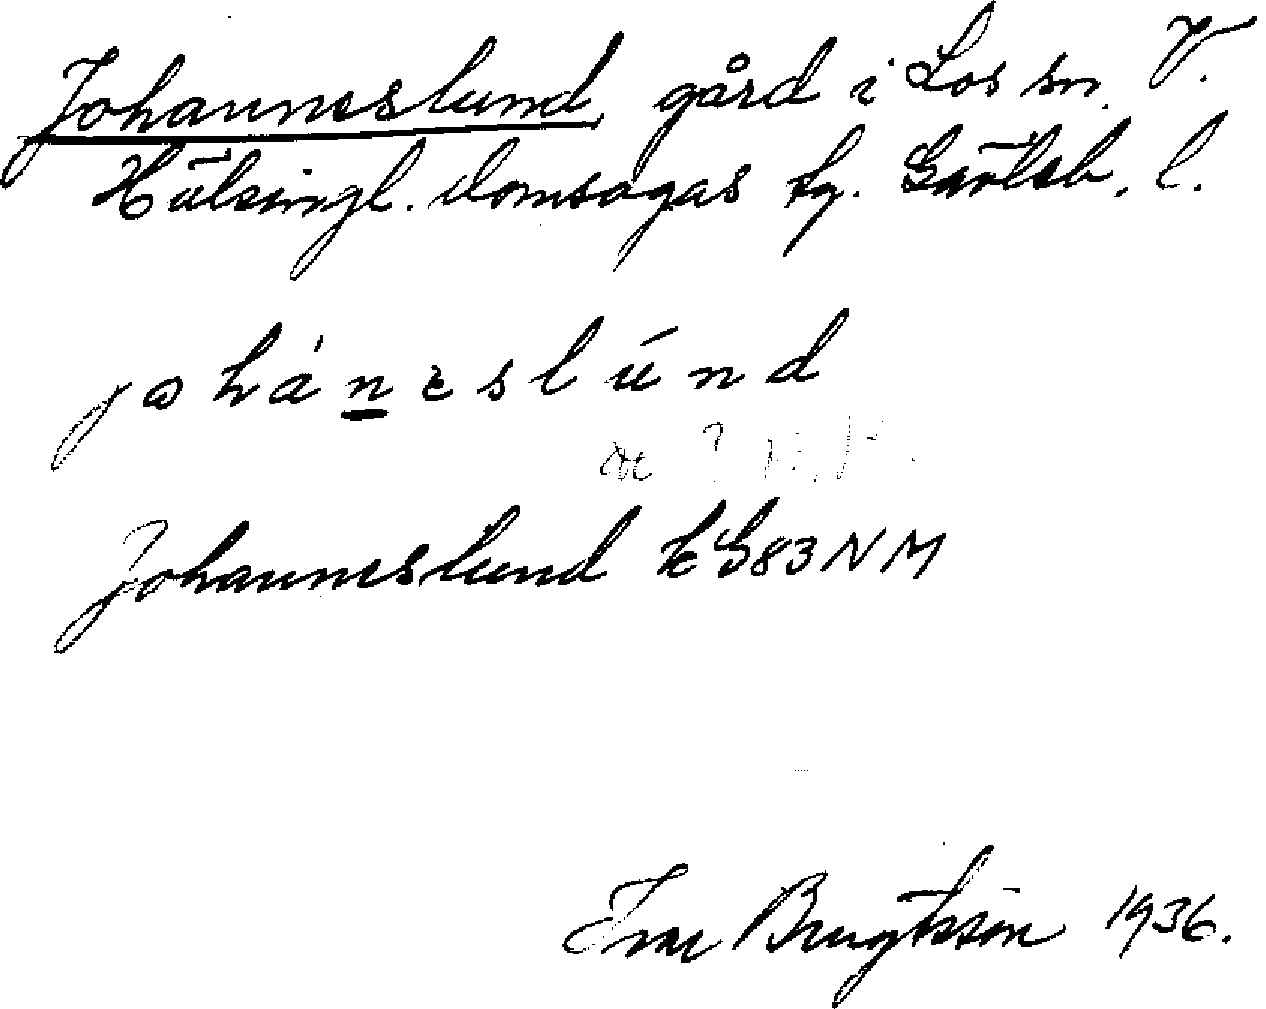 Johanneslund, gård i Los sn. V.
Hälsingl. domsagas tg. Gävleb. l.
johánɛslúnd
Johanneslund EG83NM
Ivar Bengtsson 1936.